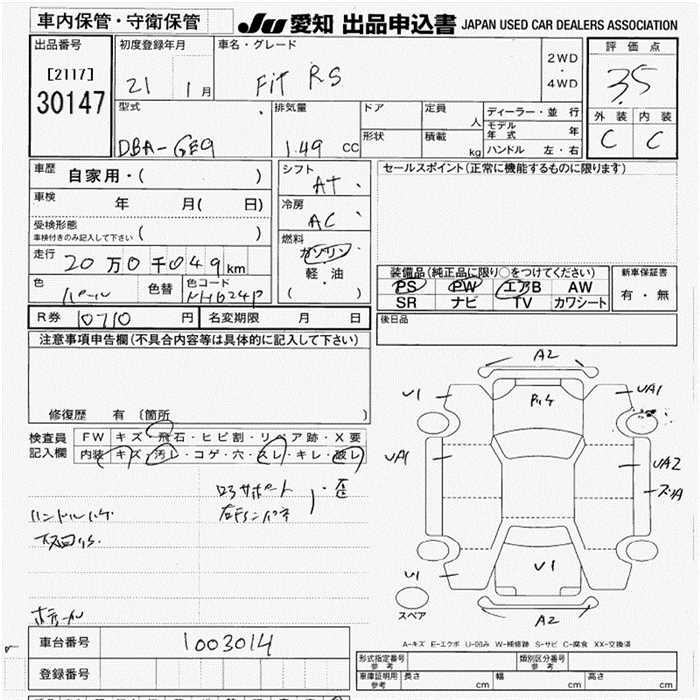 車内保管・守衛保管 JU 愛知 出品申込書 JAPAN USED CAR DEALERS ASSOCIATION
出品番号 初度登録年月 車名・グレード 2WD ・ 4WD 評価点
[2117] 21 1月 Fit RS 3.5
30147
型式 排気量 ドア 定員 人 ディーラー・並行 外装 内装
モデル年式 年
DBA-GE9 1.49 cc 形状 積載 kg ハンドル 左・右 C C
車歴 自家用・( ) シフト AT セールスポイント(正常に機能するものに限ります)
車検 年 月( 日) 冷房 AC
受検形態
車検付きのみ記入して下さい ( )
燃料 ガソリン
走行 20万0千049km 軽・油
装備品(純正品に限り○をつけてください) 新車保証書
色 パール 色替 色コード NH624P ( )
PS PW エアB AW 有・無
SR ナビ TV カワシート
R券 10710 円 名変期限 月 日 後日品
注意事項申告欄(不具合内容等は具体的に記入して下さい)
修復歴 有 〔箇所 〕
検査員 記入欄
FW キズ・飛石・ヒビ割・リペア跡・X要
内装 キズ・汚レ・コゲ・穴・スレ・キレ・破レ
ロアサポート
歪
ハンドルハゲ
A2
U1
UA1
UA1
UA2
U1
U1
A2
スペア
A-キズ E-エクボ U-凹み W-補修跡 S-サビ C-腐食 XX-交換済
車台番号 1003014
登録番号
形式指定番号 参考 類別区分番号 参考
車庫証明用 参考 長さ cm 幅 cm 高さ cm